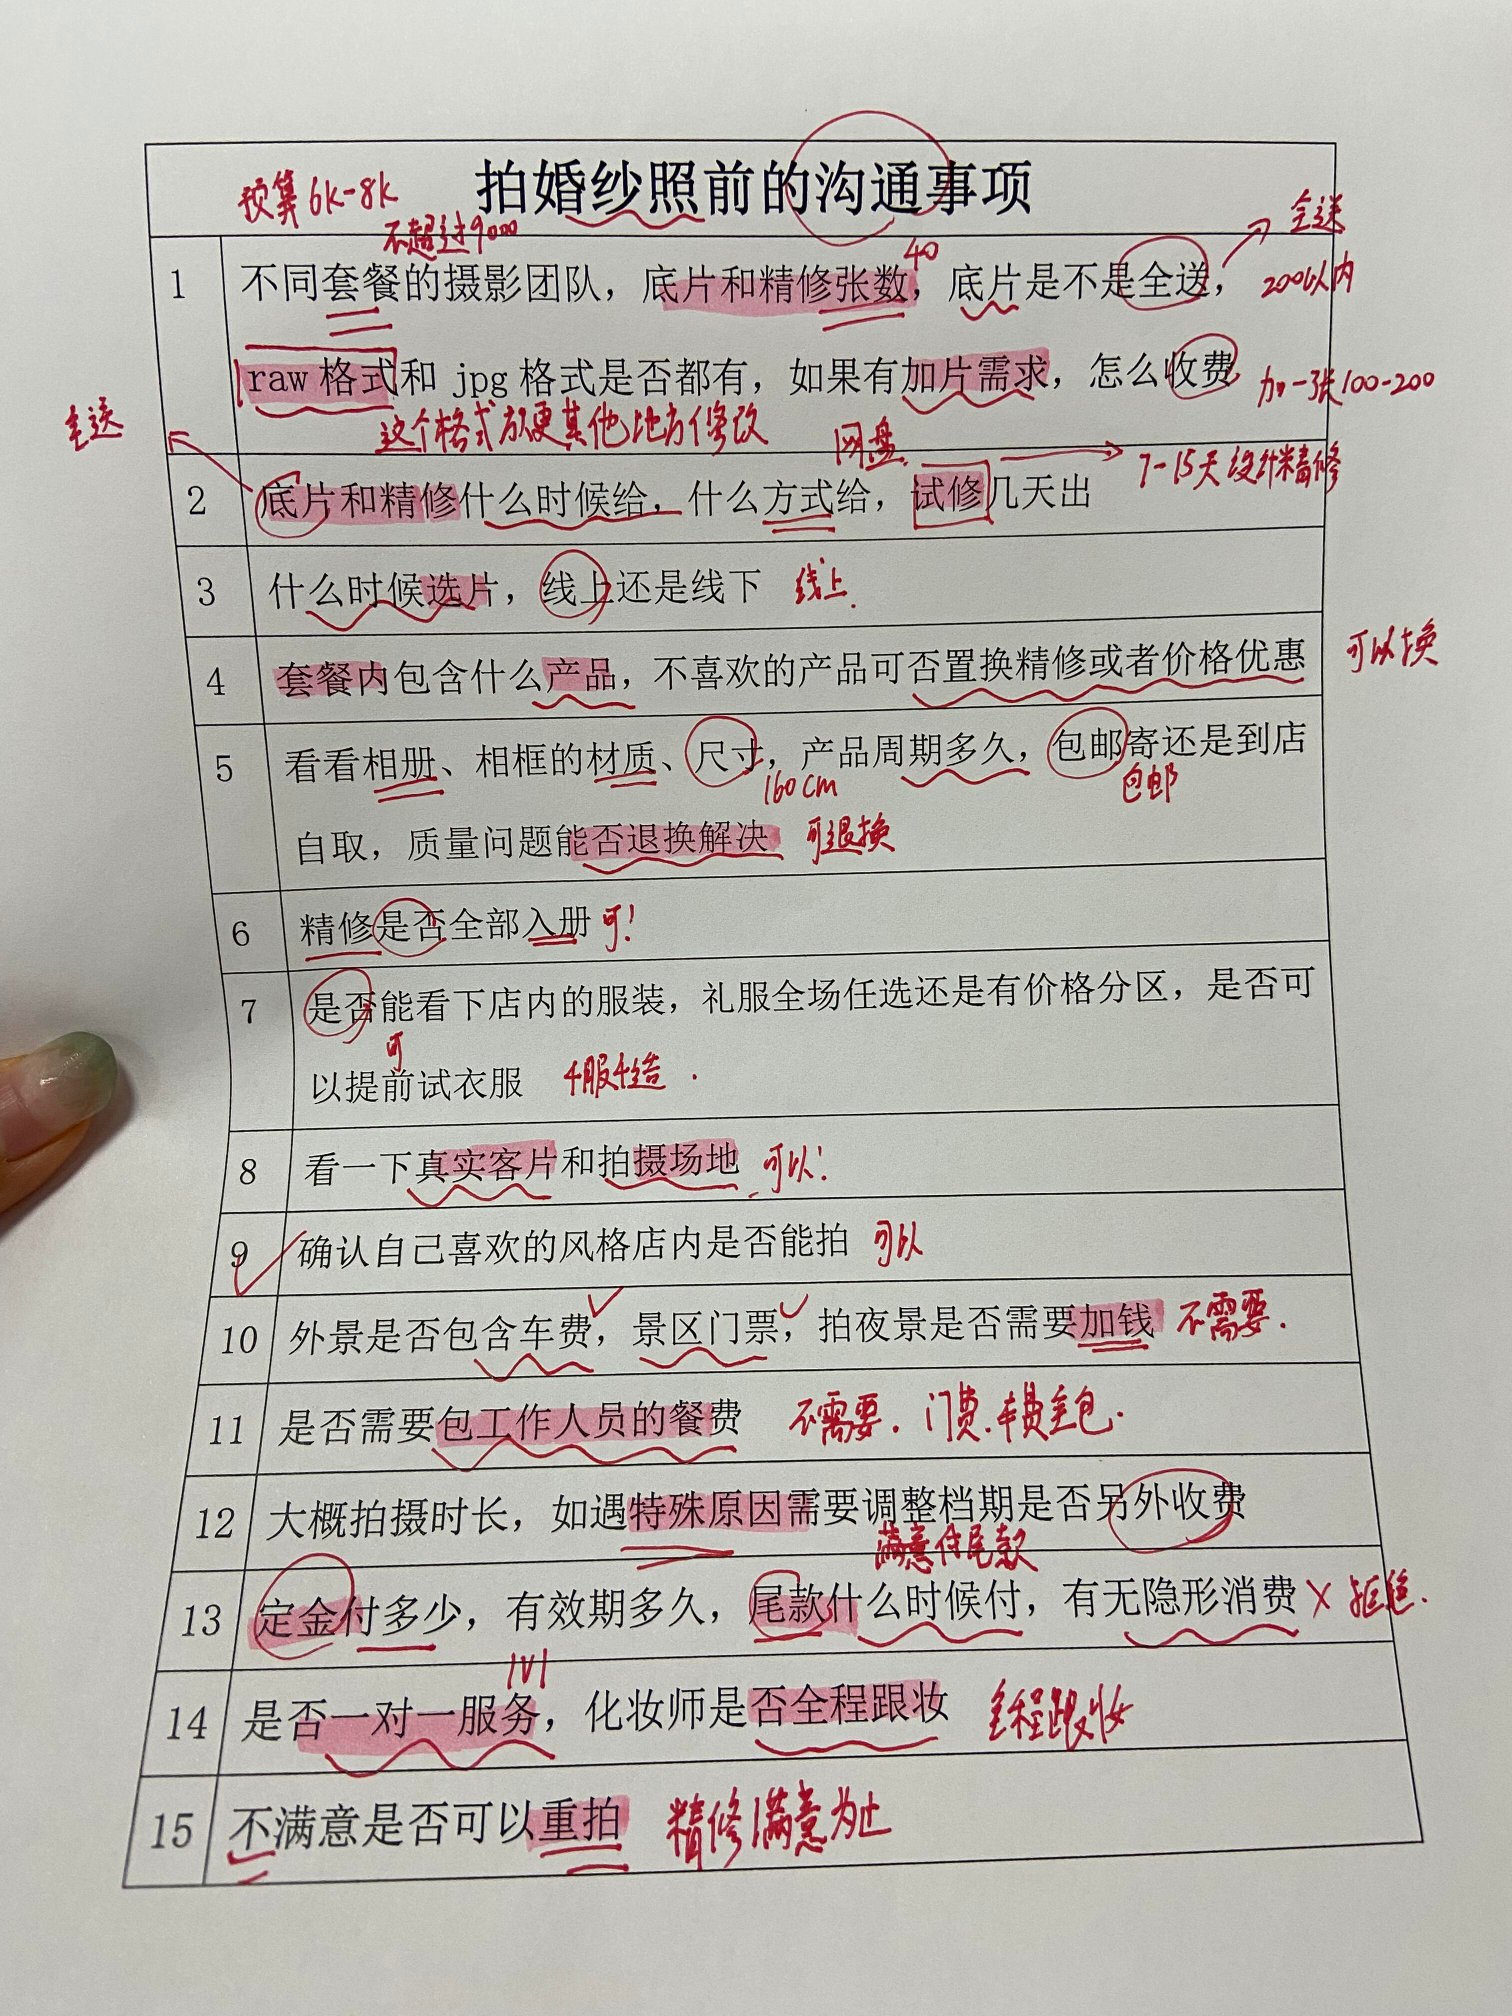 拍婚纱照前的沟通事项
预算6k-8k
不超过9000
全送
40
1 不同套餐的摄影团队，底片和精修张数，底片是不是全送，
200以内
raw 格式和 jpg 格式是否都有，如果有加片需求，怎么收费
加一张100-200
这个格式方便其他地方修改
全送
网盘
7-15天设计精修
2 底片和精修什么时候给，什么方式给，试修几天出
3 什么时候选片，线上还是线下 线上.
4 套餐内包含什么产品，不喜欢的产品可否置换精修或者价格优惠 可以换
5 看看相册、相框的材质、尺寸，产品周期多久，包邮寄还是到店
160cm 包邮
自取，质量问题能否退换解决 可退换
6 精修是否全部入册 可!
7 是否能看下店内的服装，礼服全场任选还是有价格分区，是否可
可
以提前试衣服 4服4造.
8 看一下真实客片和拍摄场地 可以!
9 确认自己喜欢的风格店内是否能拍 可以
10 外景是否包含车费，景区门票，拍夜景是否需要加钱 不需要.
11 是否需要包工作人员的餐费 不需要. 门费.车费全包.
12 大概拍摄时长，如遇特殊原因需要调整档期是否另外收费
满意付尾款
13 定金付多少，有效期多久，尾款什么时候付，有无隐形消费 × 拒绝.
1V1
14 是否一对一服务，化妆师是否全程跟妆 全程跟妆
15 不满意是否可以重拍 精修满意为止